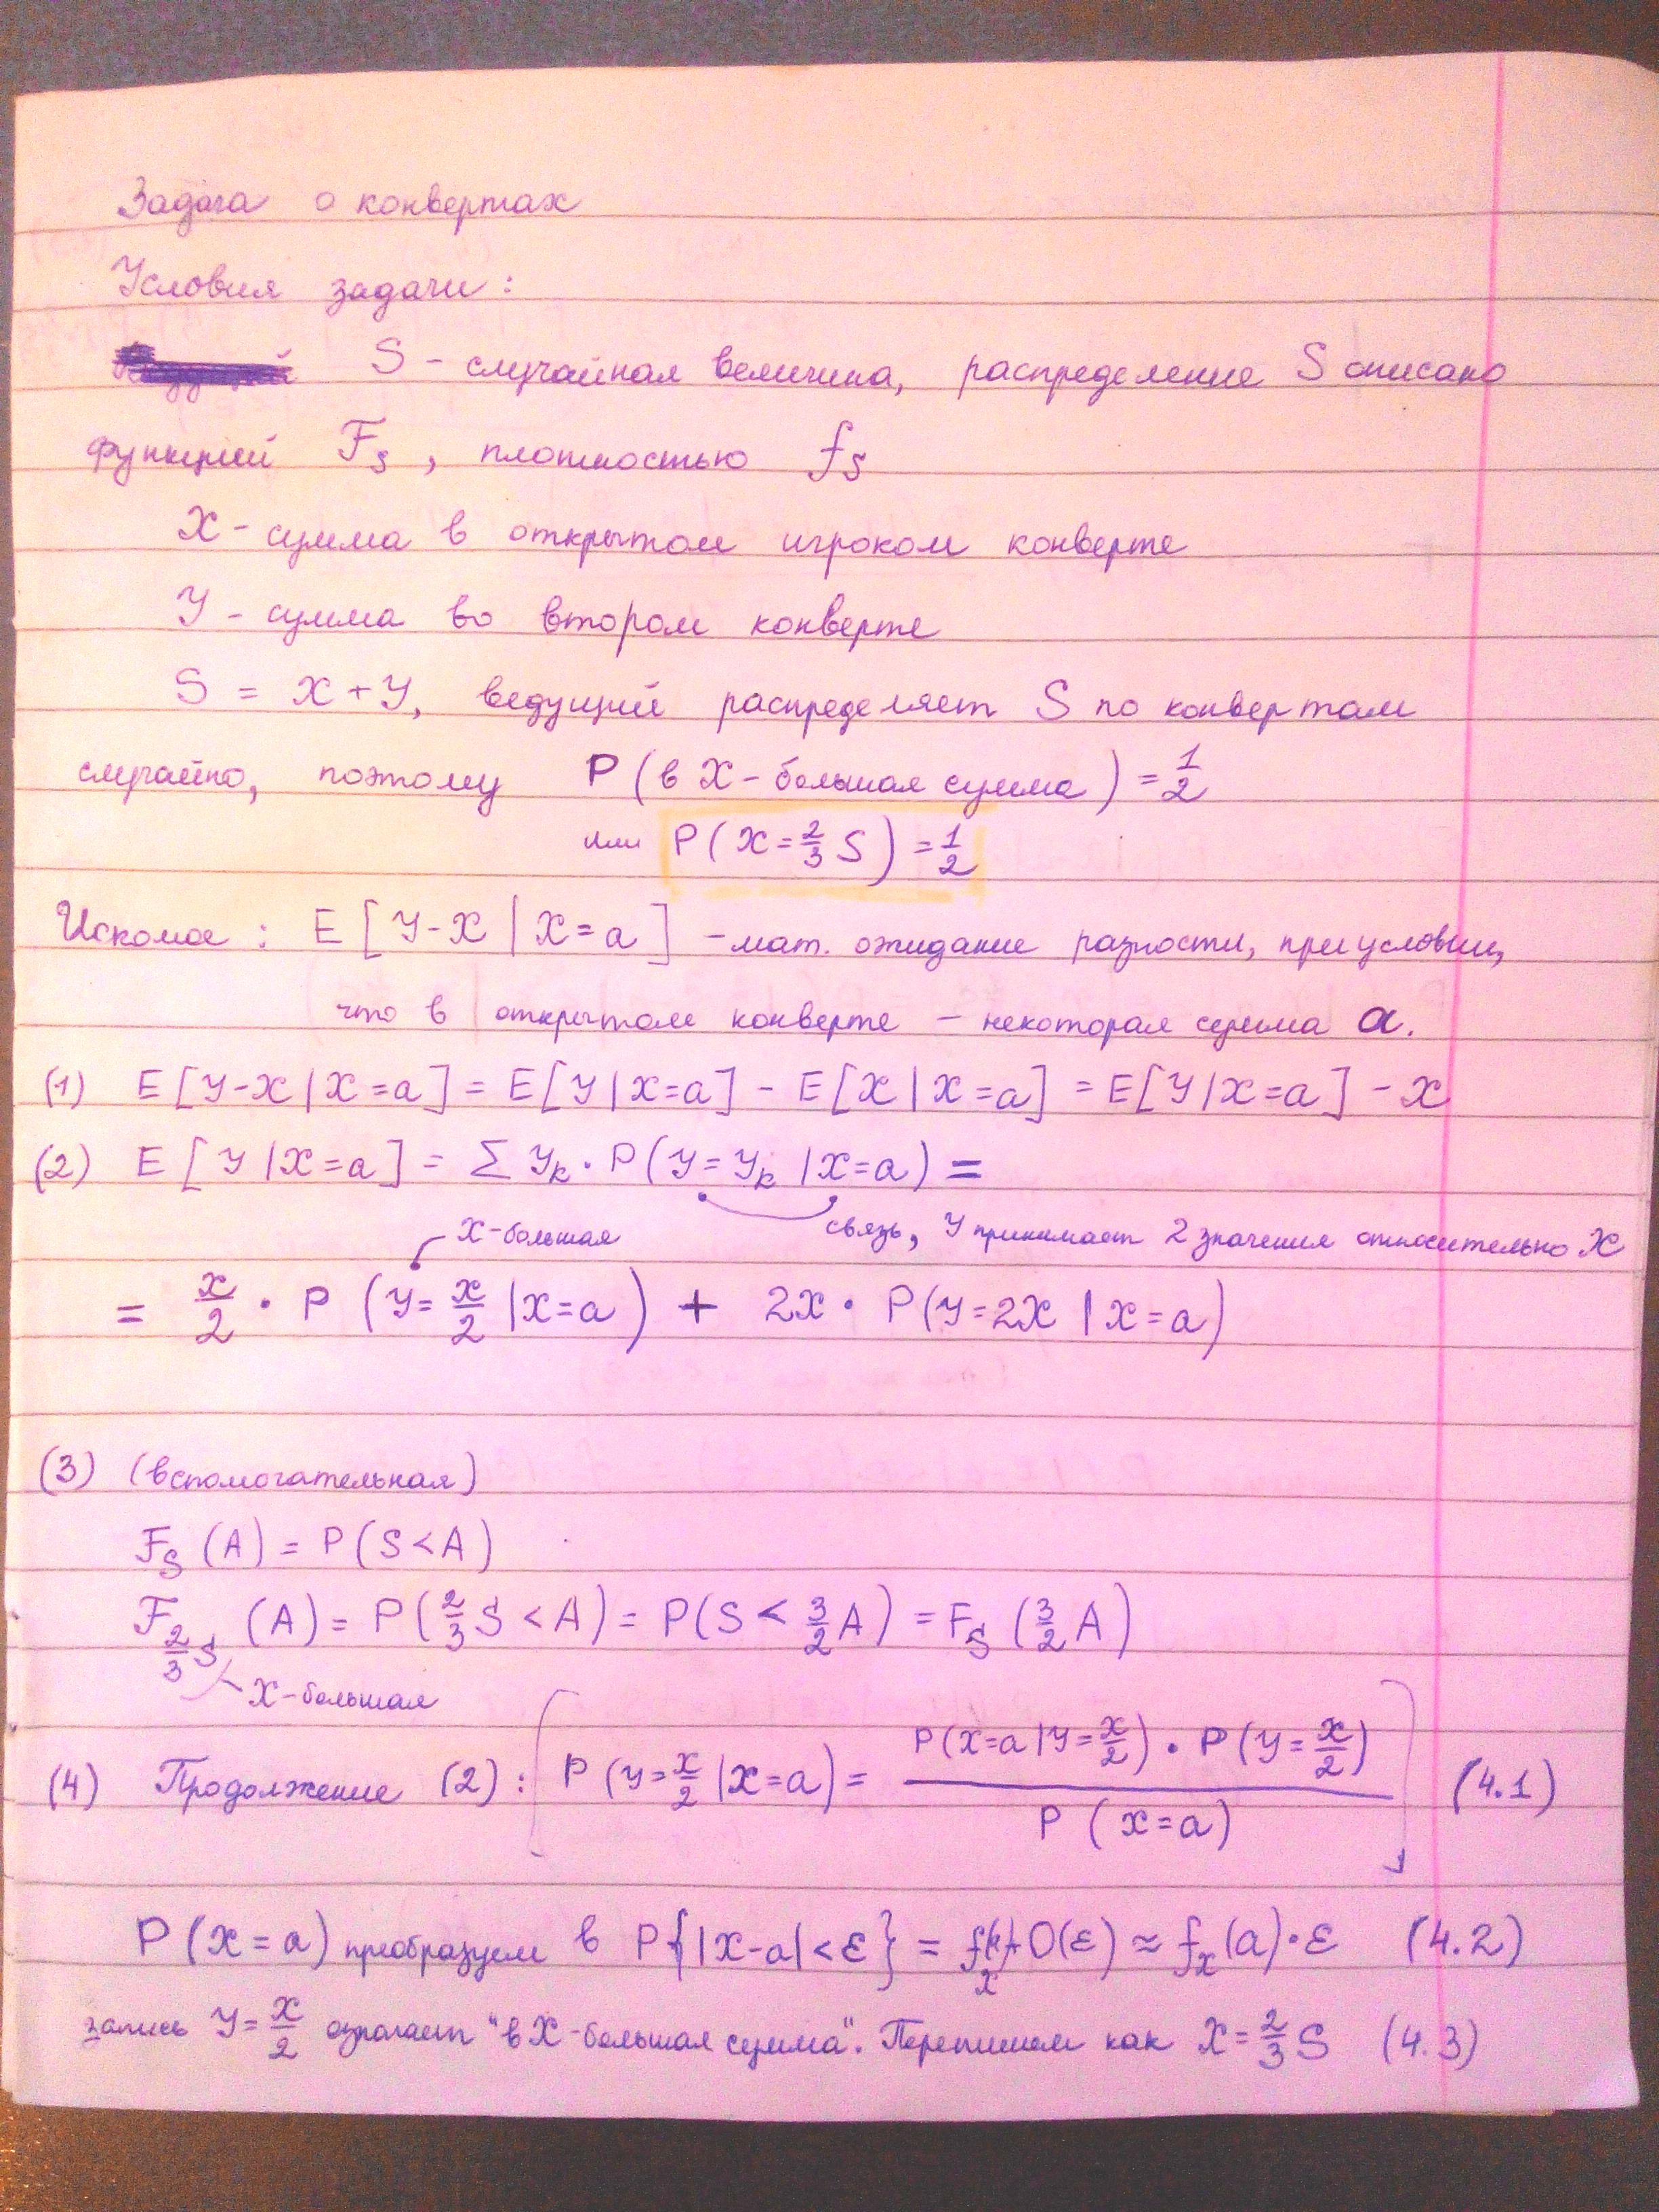 Задача о конвертах
Условия задачи:
S - случайная величина, распределение S описано
функцией F_S, плотностью f_S
X - сумма в открытом игроком конверте
Y - сумма во втором конверте
S = X+Y, ведущий распределяет S по конвертам
случайно, поэтому P(в X - большая сумма) = 1/2
или P(X = 2/3 S) = 1/2
Искомое: E[Y-X | X=a] - мат. ожидание разности, при условии,
что в открытом конверте - некоторая сумма a.
(1) E[Y-X | X=a] = E[Y | X=a] - E[X | X=a] = E[Y | X=a] - X
(2) E[Y | X=a] = Σ Y_k · P(Y=Y_k | X=a) =
связь, Y принимает 2 значения относительно X
X-большая
= X/2 · P(Y = X/2 | X=a) + 2X · P(Y=2X | X=a)
(3) (вспомогательная)
F_S (A) = P(S<A)
F_{2/3 S} (A) = P(2/3 S < A) = P(S < 3/2 A) = F_S (3/2 A)
X-большая
(4) Продолжение (2): [P(Y = X/2 | X=a) = P(X=a | Y = X/2) · P(Y = X/2) / P(X=a)] (4.1)
P(X=a) преобразуем в P{|X-a|<ε} = O(ε) ≈ f_X(a)·ε (4.2)
запись Y = X/2 означает "в X - большая сумма". Перепишем как X = 2/3 S (4.3)